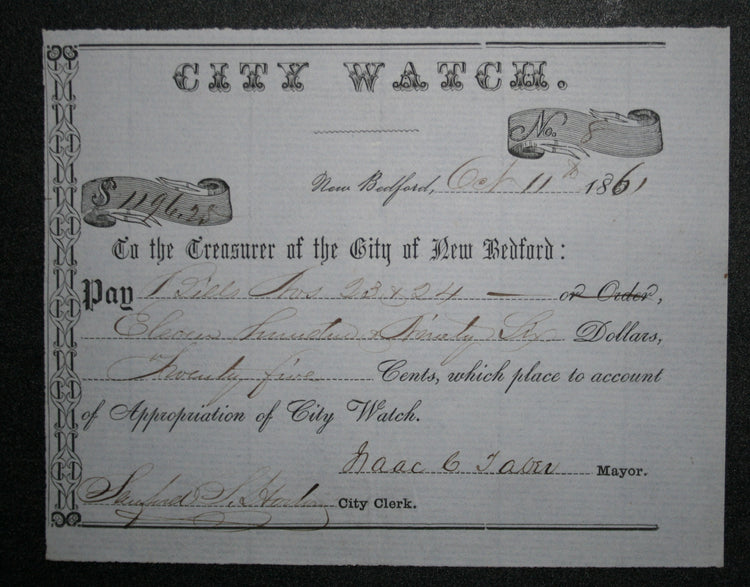 CITY WATCH.
No. 5
New Bedford, Oct 11th 1861
$ 1196.25
To the Treasurer of the City of New Bedford:
Pay Bills Nos 23 & 24 — or Order,
Eleven hundred & Ninety Six Dollars,
Twenty five Cents, which place to account
of Appropriation of City Watch.
Isaac C Taber Mayor.
Sanford S. Horton City Clerk.